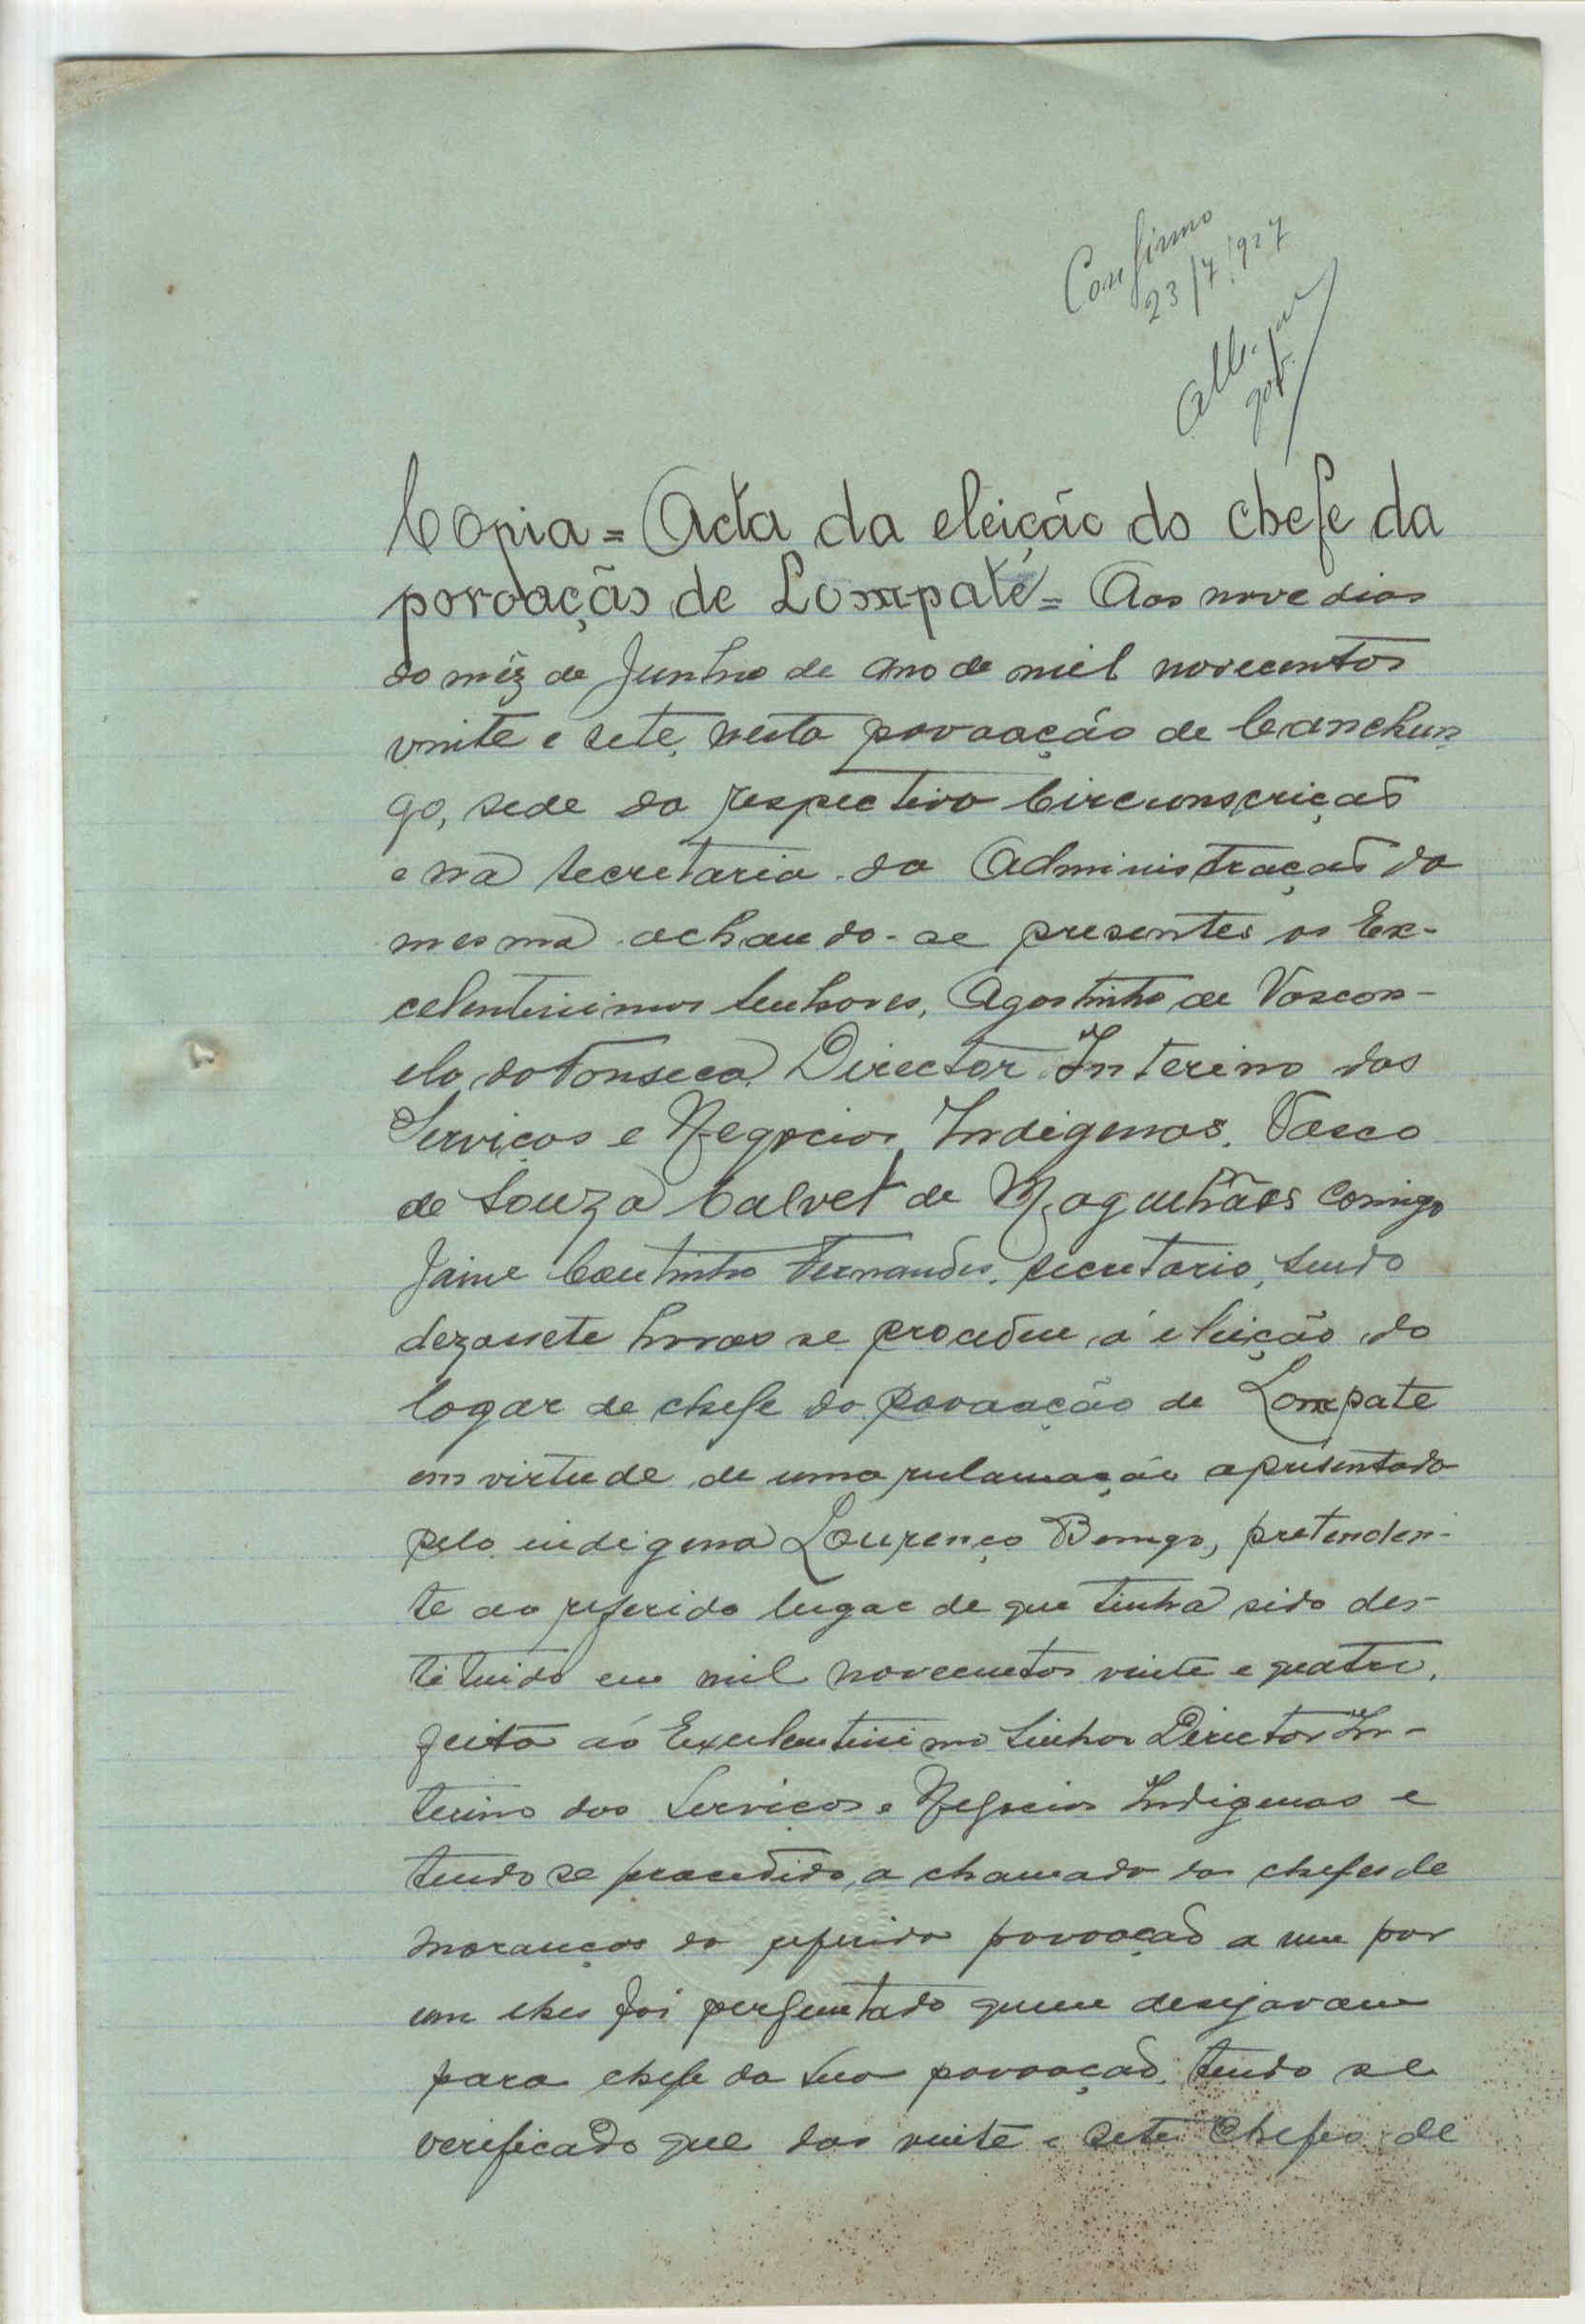 Confirmo
23/7/927
gov.
Copia = Acta da eleição do chefe da
povoação de Lompaté = Aos nove dias
do mêz de Junho de ano de mil novecentos
vinte e sete, nesta povoação de Canchun
go, sede da respectiva Circunscrição
e na secretaria da Administração da
mesma achando-se presentes os Ex-
celentissimos Senhores, Agostinho de Vascon-
elo da Fonseca Director Interino dos
Serviços e Negocios Indigenas, Vasco
de Souza Calvet de Magalhães comigo
Jaime Coutinho Fernandes, secretario, sendo
dezassete horas se procedeu á eleição do
logar de chefe da povoação de Lompate
em virtude de uma reclamação apresentada
pelo indigena Lourenço Bomgo, pretenden-
te ao referido lugar de que tinha sido des-
tituido em mil novecentos vinte e quatro,
feita ao Excelentissimo Senhor Director In-
terino dos Serviços e Negocios Indigenas e
tendo se procedido a chamada dos chefes de
moranças da referida povoação a um por
um lhes foi perguntado quem desejavam
para chefe da sua povoação, tendo se
verificado que dos vinte e sete chefes de